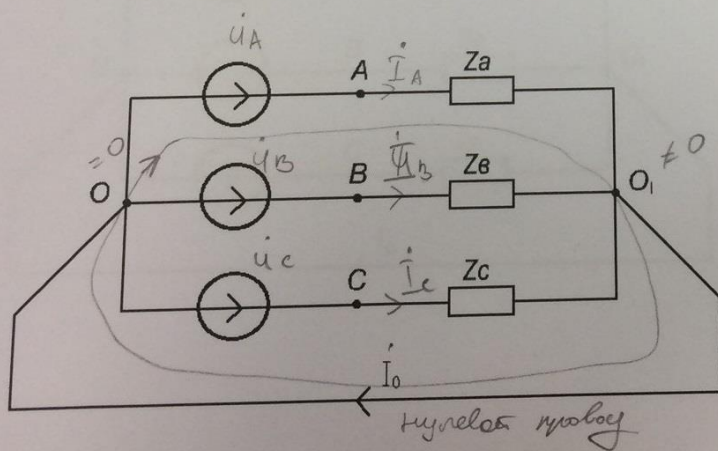 u̇A
A
İA
Za
=0
O
u̇B
B
İB
Zв
O₁
≠0
u̇c
C
İc
Zc
İ₀
нулевой провод